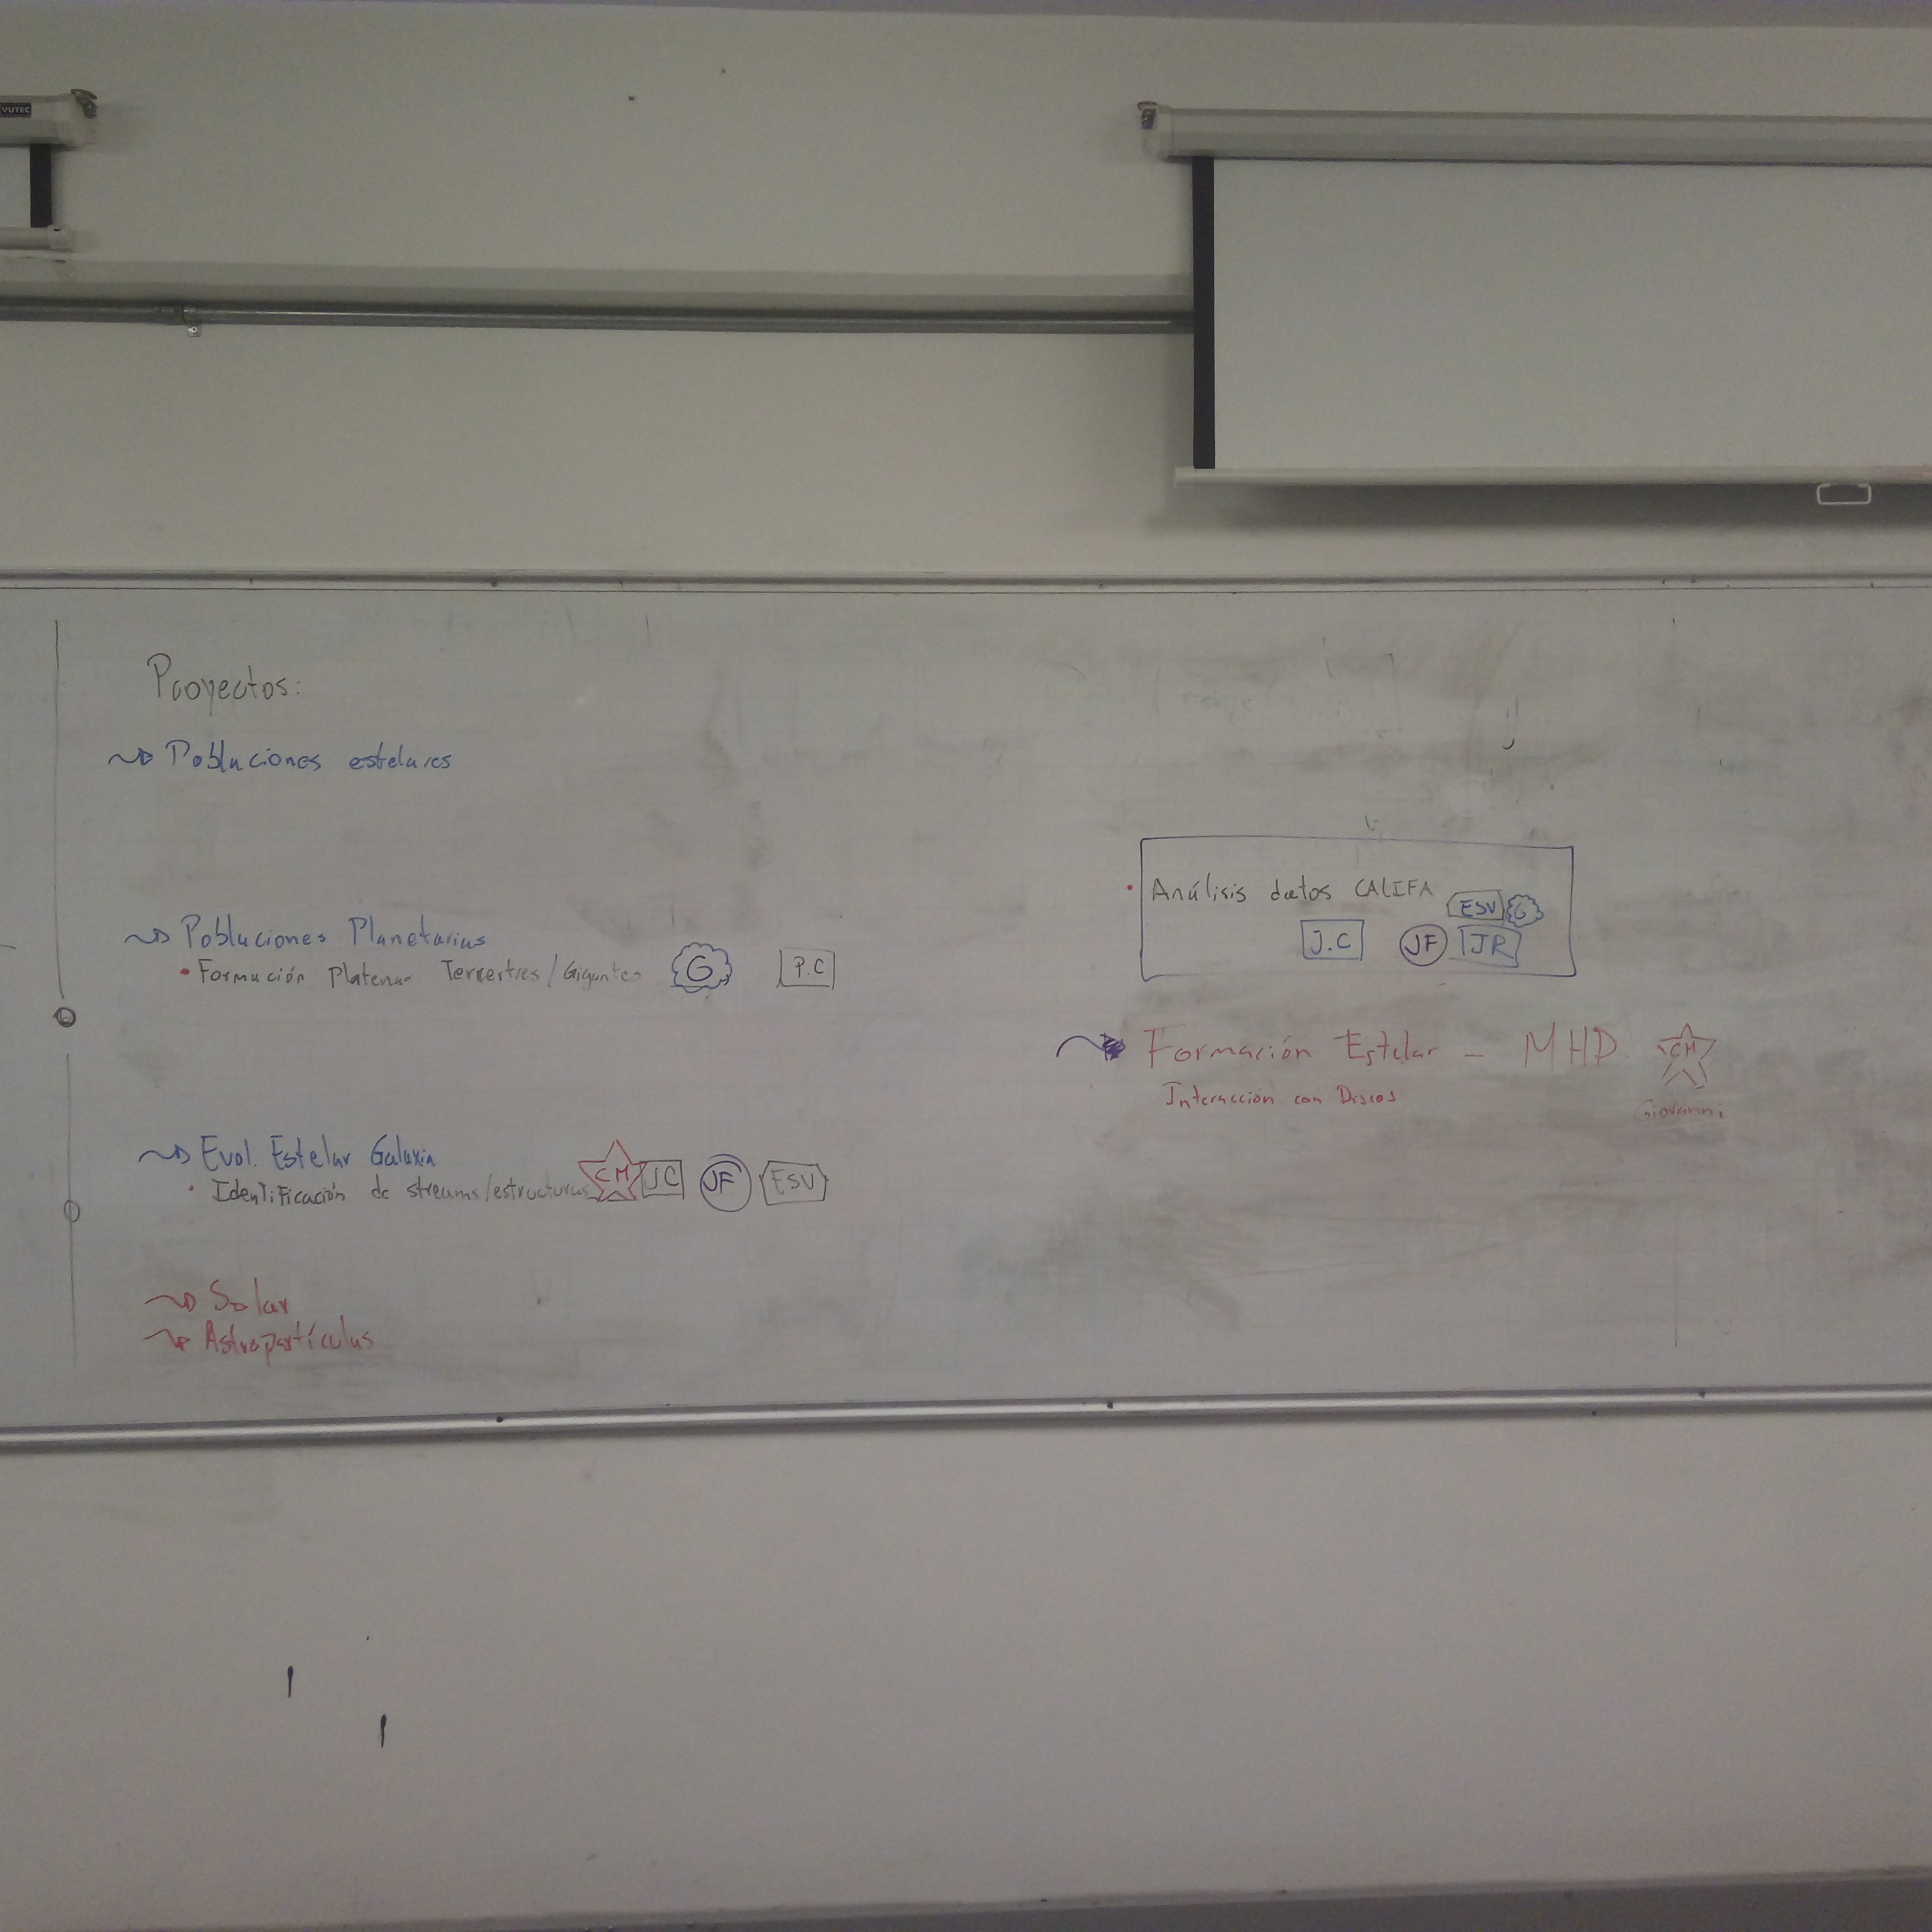 VUTEC
Proyectos:
Poblaciones estelares
Poblaciones Planetarias
• Formación Platenas Terrestres/Gigantes G P.C
Evol. Estelar Galaxia
• Identificación de streams/estructuras CM J.C JF ESV
Solar
Astropartículas
• Análisis datos CALIFA
ESV G
J.C JF JR
Formación Estelar - MHD CM
Interacción con Discos
Giovanni